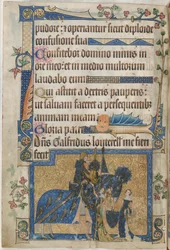 pudore: et operiantur sicut deploide
confusione sua
Confitebor domino nimis in
ore meo: et in medio multorum
laudabo eum
Qui astitit a dextris pauperis: 
ut salvam faceret a persequentibus
animam meam
Gloria patri
Dn̄s Galfridus louterell me fieri
fecit